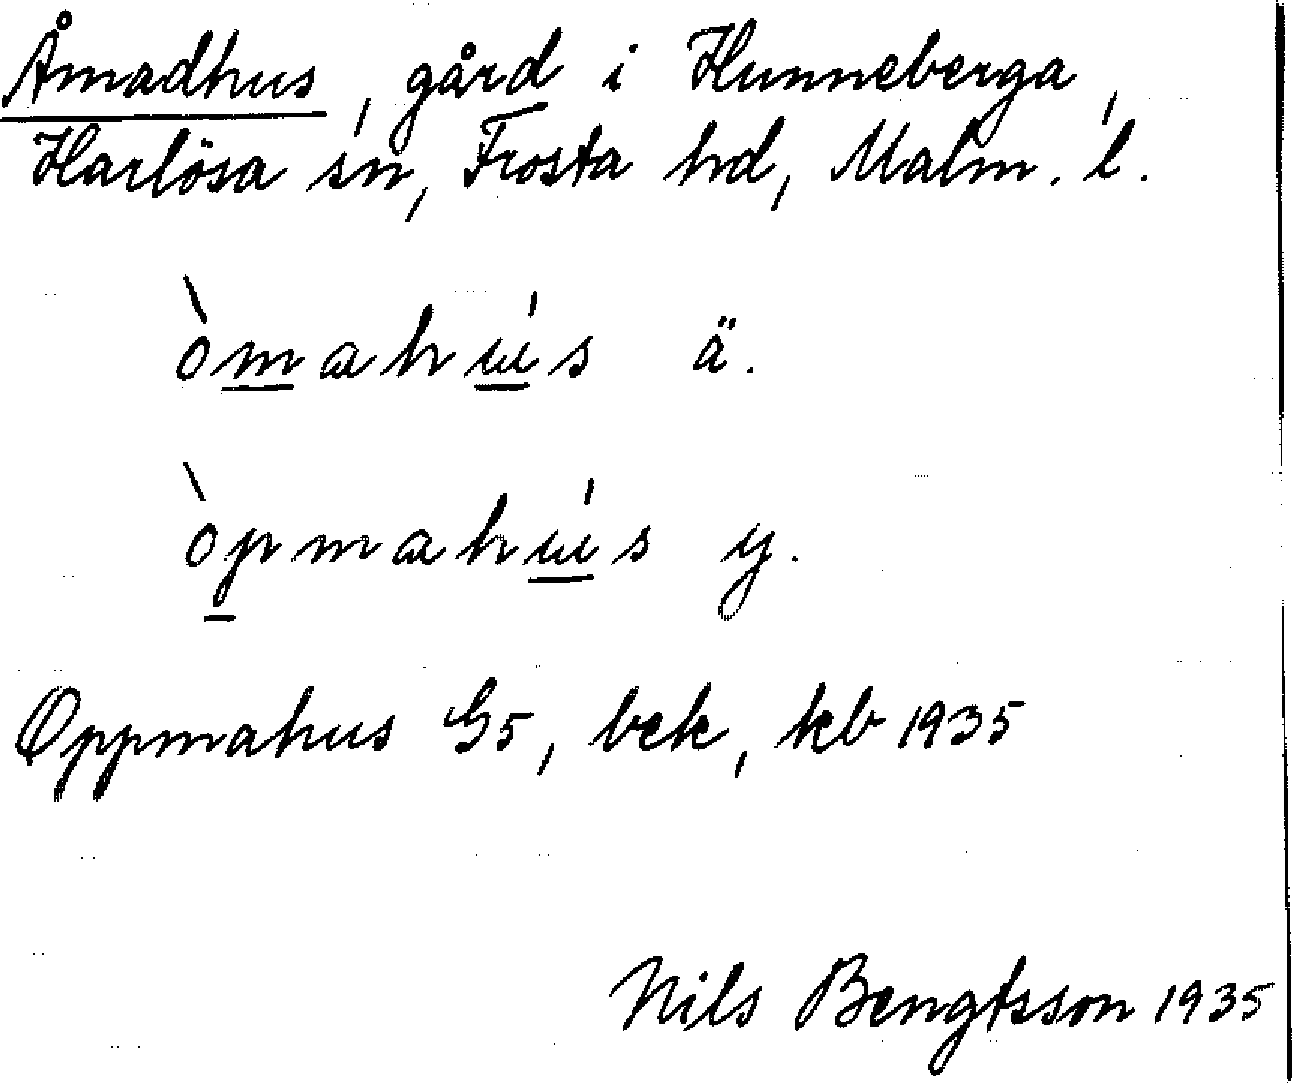 Åmadhus, gård i Hunneberga,
Harlösa sn, Frosta hd, Malm. l.
òmahús ä.
òpmahús y.
Oppmahus G5, bek, kb 1935
Nils Bengtsson 1935